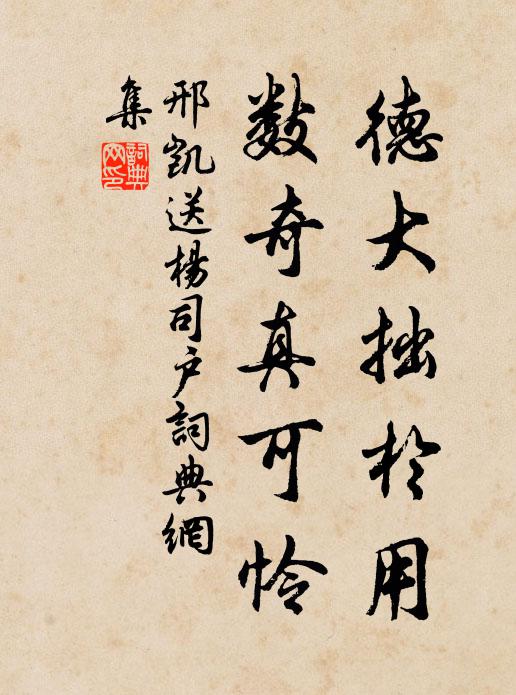 德大拙於用
数奇真可怜
邢凯送楊司户詞典網
集
詞典網印